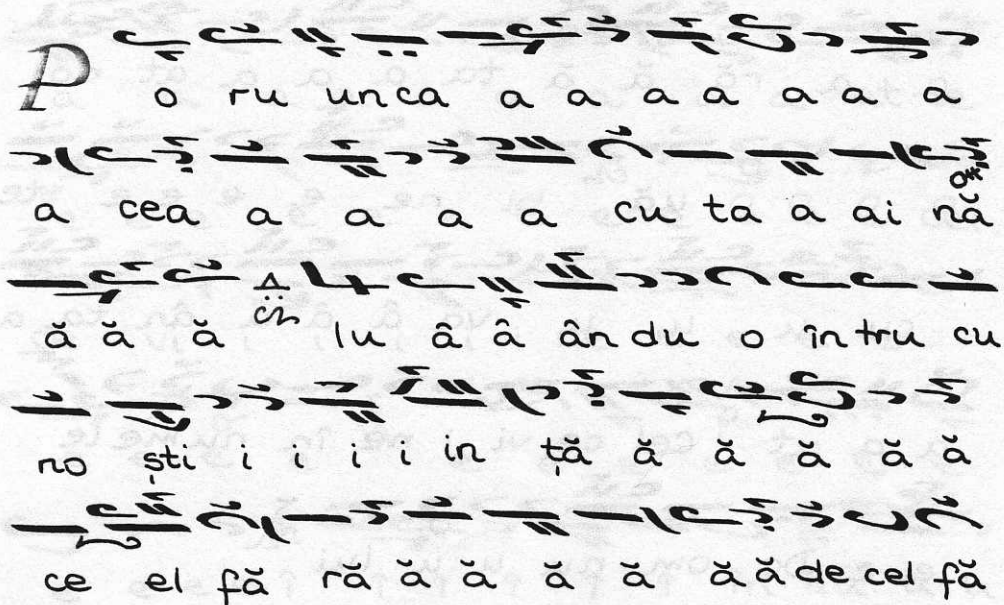 Po ru unca a a a a a a a
a cea a a a a cu ta a ai nă
ă ă ă lu â â ân du o întru cu
no ști i i i i in ță ă ă ă ă ă
ce el fă ră ă ă ă ă ă ă de cel fă